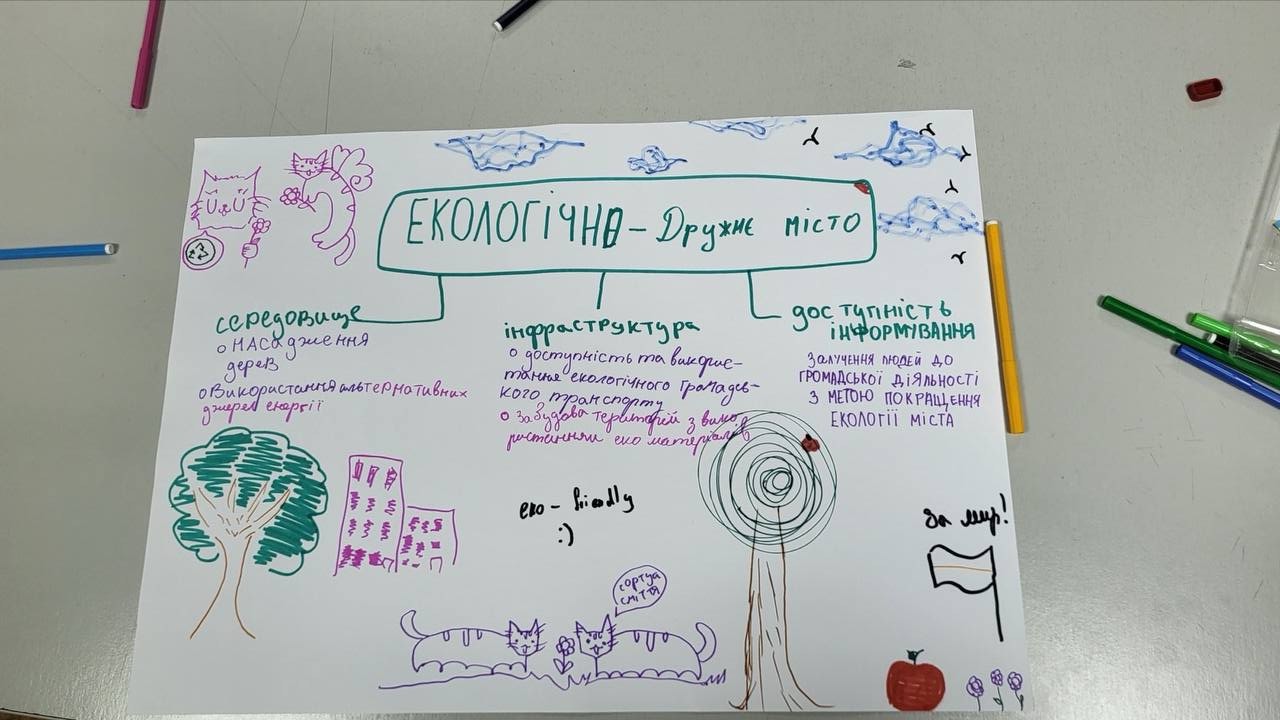 ЕКОЛОГІЧНО – Дружнє місто
середовище
о насадження
дерев
о Використання альтернативних
джерел енергії
інфраструктура
о доступність та викорис-
тання екологічного громадсь-
кого транспорту
о забудова територій з вико
ристанням еко матеріалів
доступність
інформування
залучення людей до
громадської діяльності
з метою покращення
екології міста
еко - friendly
:)
сортуй
сміття
за мир!